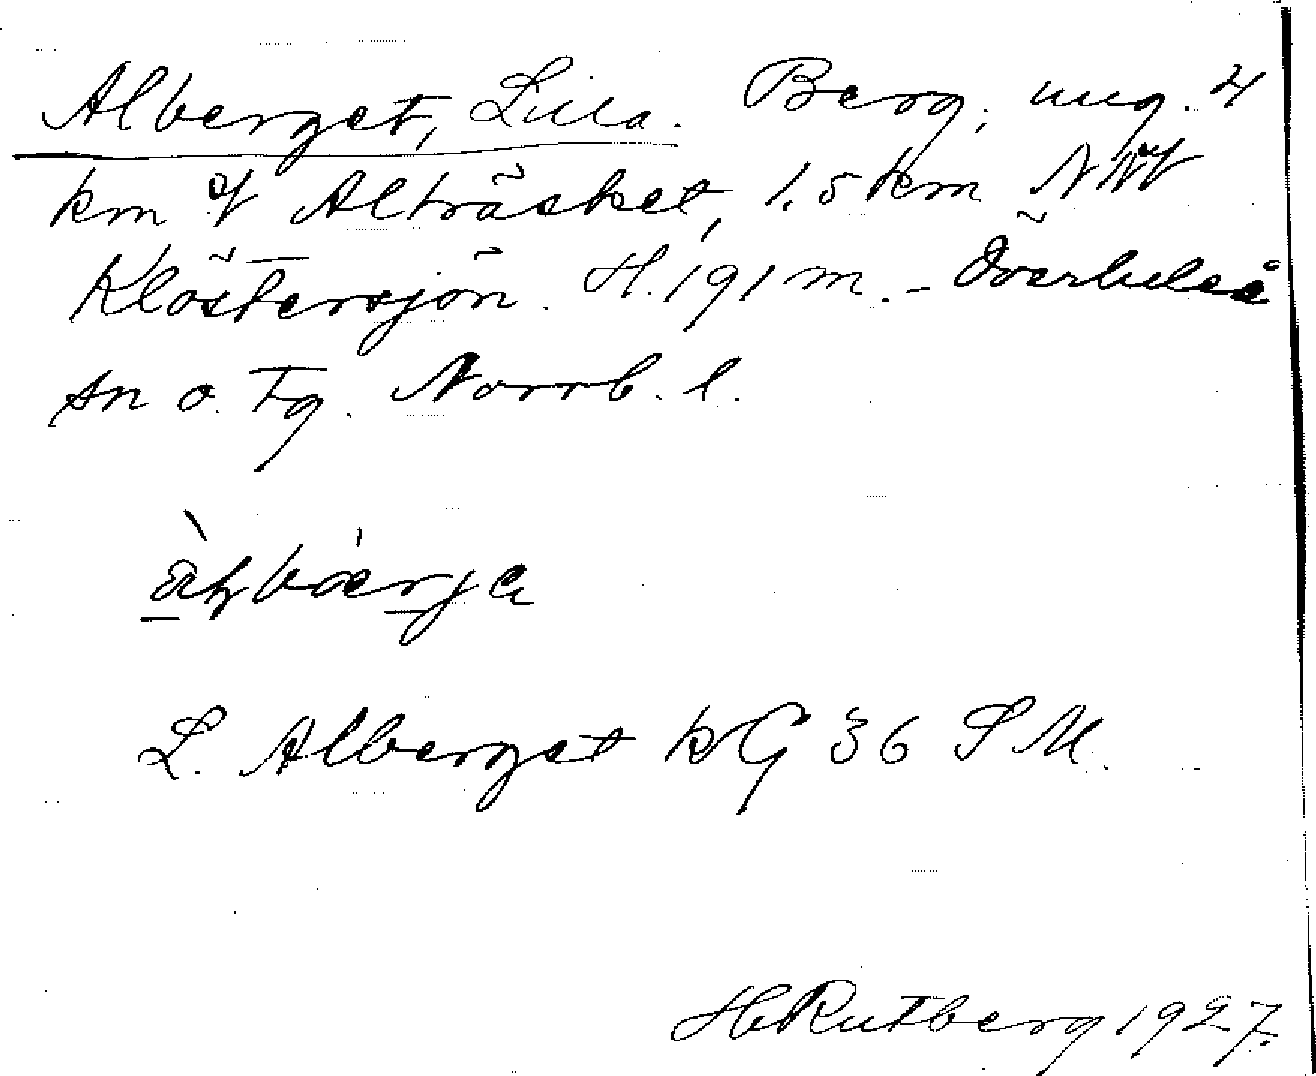 Alberget, Lilla. Berg, ung. 4
km V Alträsket, 1,5 km NW
Klöstersjön. H. 191 m. - Överluleå
sn o. tg. Norrb. l.
L. Alberget kG 36 S M.
H Rutberg 1927.